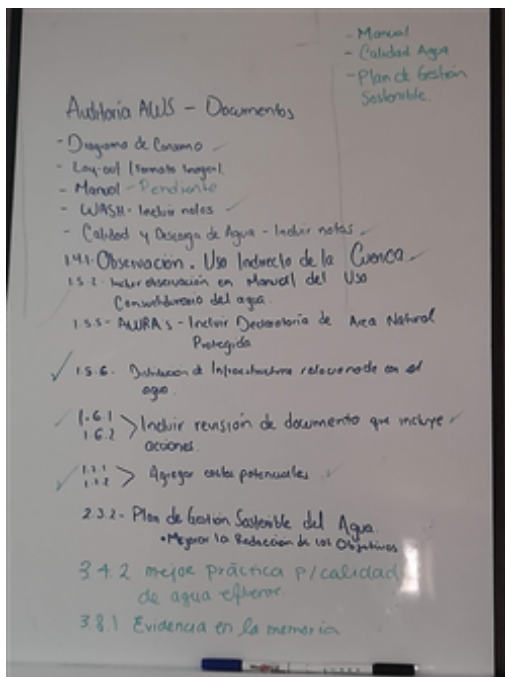 - Manual
- Calidad Agua
- Plan de Gestión
Sostenible.
Auditoría AWS - Documentos
- Diagrama de Consumo
- Lay-out (Formato Imagen)
- Manual - Pendiente
- WASH - Incluir notas
- Calidad y Descarga de Agua - Incluir notas
1.4.1. Observación. Uso Indirecto de la Cuenca
1.5.2. Incluir observación en Manual del Uso
del agua.
1.5.5 - Incluir Declaratoria de Area Natural
Protegida
1.5.6. Infraestructura relacionada con el
agua
1.6.1
1.6.2 > Incluir revisión de documento que incluye
acciones.
> Agregar costos potenciales
2.3.2 - Plan de Gestión Sostenible del Agua.
• Mejorar la Redacción de los Objetivos
3.4.2 mejor práctica p/calidad
de agua
3.8.1 Evidencia en la memoria